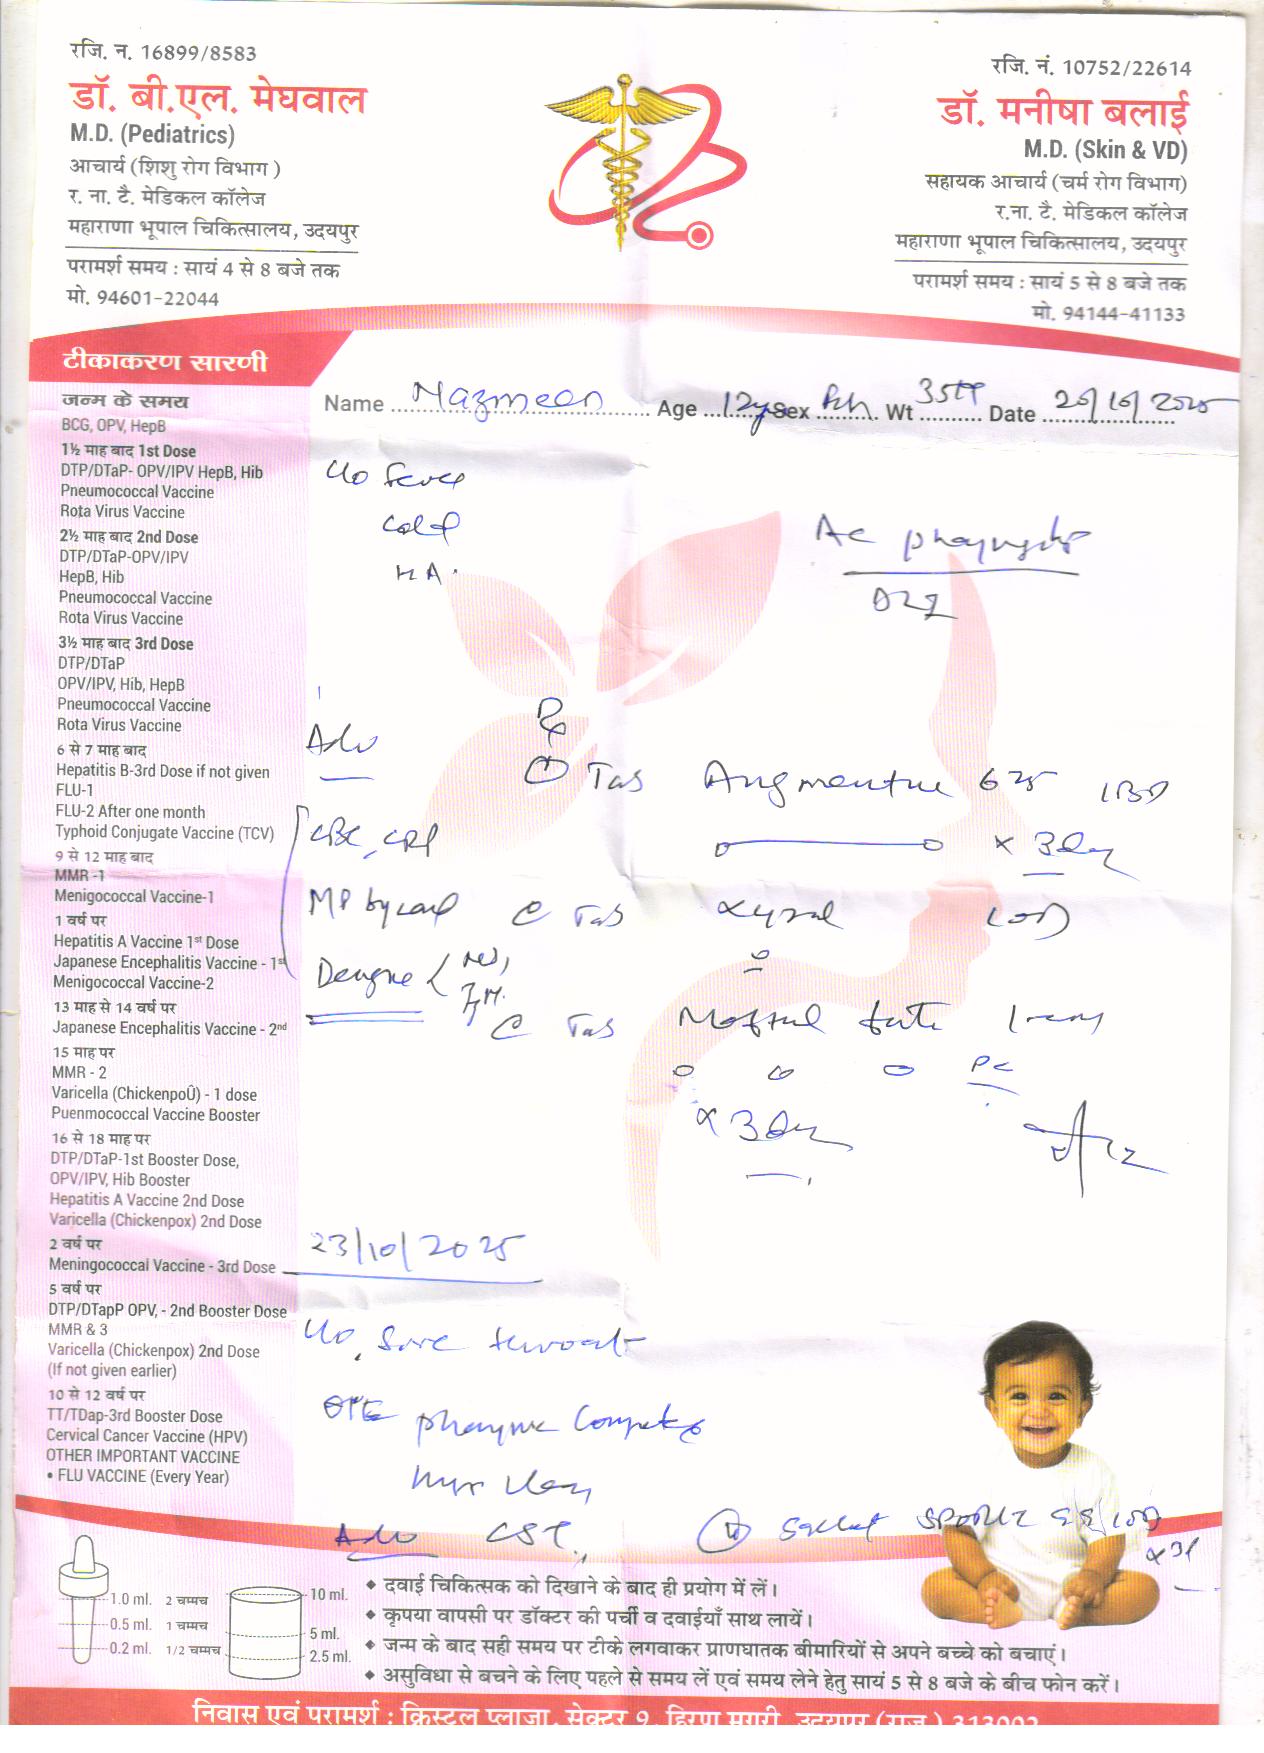 रजि. न. 16899/8583
डॉ. बी.एल. मेघवाल
M.D. (Pediatrics)
आचार्य (शिशु रोग विभाग )
र. ना. टै. मेडिकल कॉलेज
महाराणा भूपाल चिकित्सालय, उदयपुर
परामर्श समय : सायं 4 से 8 बजे तक
मो. 94601-22044
रजि. नं. 10752/22614
डॉ. मनीषा बलाई
M.D. (Skin & VD)
सहायक आचार्य (चर्म रोग विभाग)
र.ना. टै. मेडिकल कॉलेज
महाराणा भूपाल चिकित्सालय, उदयपुर
परामर्श समय : सायं 5 से 8 बजे तक
मो. 94144-41133
टीकाकरण सारणी
जन्म के समय
BCG, OPV, HepB
1½ माह बाद 1st Dose
DTP/DTaP- OPV/IPV HepB, Hib
Pneumococcal Vaccine
Rota Virus Vaccine
2½ माह बाद 2nd Dose
DTP/DTaP-OPV/IPV
HepB, Hib
Pneumococcal Vaccine
Rota Virus Vaccine
3½ माह बाद 3rd Dose
DTP/DTaP
OPV/IPV, Hib, HepB
Pneumococcal Vaccine
Rota Virus Vaccine
6 से 7 माह बाद
Hepatitis B-3rd Dose if not given
FLU-1
FLU-2 After one month
Typhoid Conjugate Vaccine (TCV)
9 से 12 माह बाद
MMR -1
Menigococcal Vaccine-1
1 वर्ष पर
Hepatitis A Vaccine 1st Dose
Japanese Encephalitis Vaccine - 1st
Menigococcal Vaccine-2
13 माह से 14 वर्ष पर
Japanese Encephalitis Vaccine - 2nd
15 माह पर
MMR - 2
Varicella (ChickenpoÛ) - 1 dose
Puenmococcal Vaccine Booster
16 से 18 माह पर
DTP/DTaP-1st Booster Dose,
OPV/IPV, Hib Booster
Hepatitis A Vaccine 2nd Dose
Varicella (Chickenpox) 2nd Dose
2 वर्ष पर
Meningococcal Vaccine - 3rd Dose
5 वर्ष पर
DTP/DTapP OPV, - 2nd Booster Dose
MMR & 3
Varicella (Chickenpox) 2nd Dose
(If not given earlier)
10 से 12 वर्ष पर
TT/TDap-3rd Booster Dose
Cervical Cancer Vaccine (HPV)
OTHER IMPORTANT VACCINE
• FLU VACCINE (Every Year)
Name Nazmeen Age 12yrs Sex Fch Wt Date 20/10/2025
c/o fever
cold
HA.
Ac pharyngitis
Adv
Rx
Tab Augmentin 625 1BD
x 3 day
CBC, CRP
MP by card
Tab Xyzal 1OD
Dengue
Tab Meftal forte
PC
x 3 day
23/10/2025
c/o Sore throat
O/E pharynx Congested
Adv CST,
x 3d
1.0 ml. 2 चम्मच
0.5 ml. 1 चम्मच
0.2 ml. 1/2 चम्मच
10 ml.
5 ml.
2.5 ml.
♦ दवाई चिकित्सक को दिखाने के बाद ही प्रयोग में लें।
♦ कृपया वापसी पर डॉक्टर की पर्ची व दवाईयाँ साथ लायें।
♦ जन्म के बाद सही समय पर टीके लगवाकर प्राणघातक बीमारियों से अपने बच्चे को बचाएं।
♦ असुविधा से बचने के लिए पहले से समय लें एवं समय लेने हेतु सायं 5 से 8 बजे के बीच फोन करें।
निवास एवं परामर्श : क्रिस्टल प्लाजा, सेक्टर 9, हिरण मगरी, उदयपुर (राज.) 313002